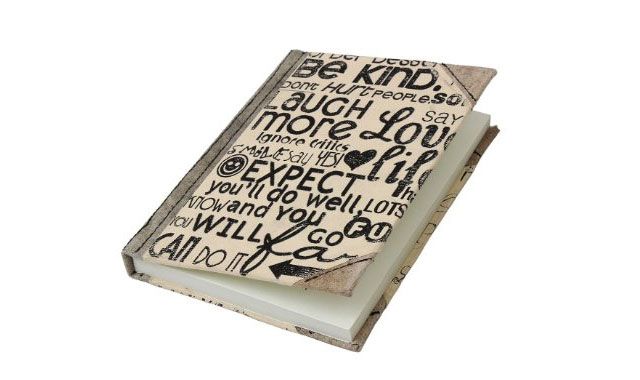 ORDER DESSERT
BE KIND.
DON'T HURT PEOPLE. SO
LAUGH SAY
MORE Love
ignore critics
SMILE say YES! life
EXPECT
you'll do well, LOTS
KNOW and YOU
YOU WILL GO
CAN DO IT fa